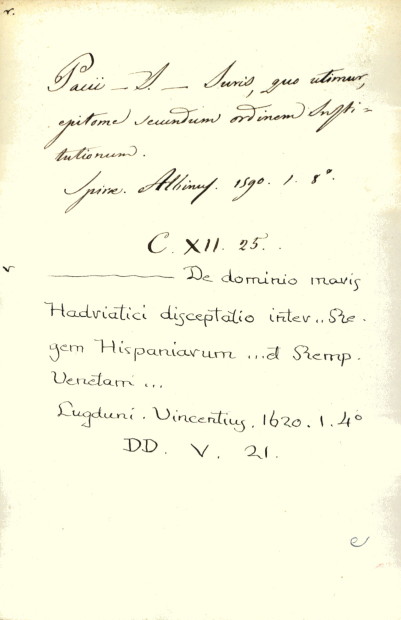 v.
Pacii — J. — Iuris, quo utimur,
epitome secundum ordinem Insti=
tutionum.
Spirae. Albinus. 1590. 1. 8°.
C. XII. 25.
v
——— De dominio maris
Hadriatici disceptatio inter .. Re-
gem Hispaniarum ... et Remp.
Venetam ...
Lugduni. Vincentius. 1620. 1. 4°
DD. V. 21.
e